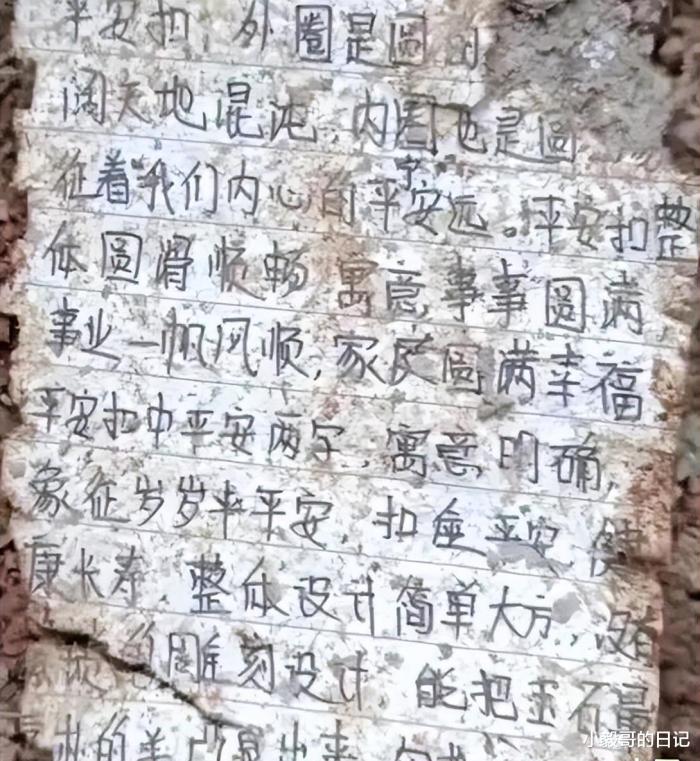 平安扣 外圈是圆
阔天地混沌,内圈也是圆
征着我们内心的平安宁远。平安扣整
体圆滑顺畅 寓意事事圆满
事业一帆风顺,家庭圆满幸福
平安扣中平安两字,寓意明确,
象征岁岁平平安 扣座平安 健
康长寿 整体设计简单大方,没有
雕刻设计 能把玉石最
的美 显出来
小毅哥的日记